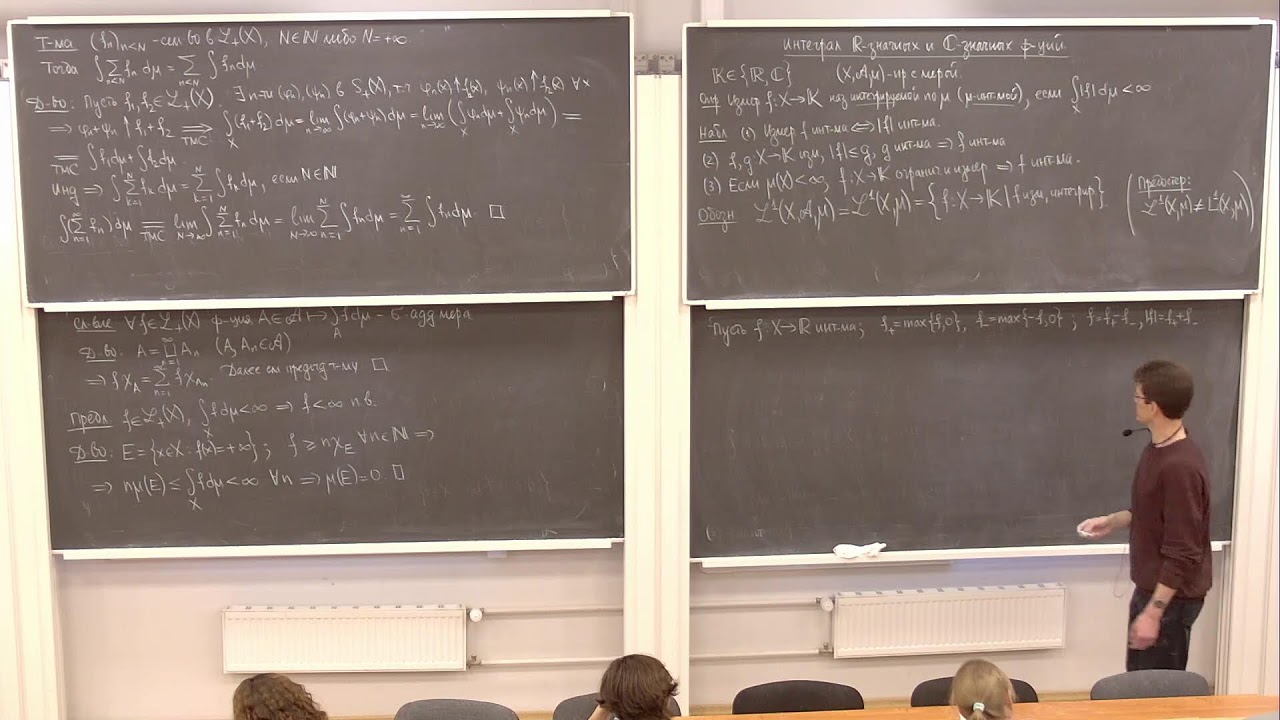 Т-ма (fₙ)ₙ<N - сем-во в ℒ₊(X), N∈ℕ либо N=+∞.
Тогда ∫∑ₙ<N fₙ dμ = ∑ₙ<N ∫fₙ dμ.
Д-во: Пусть f₁,f₂∈ℒ₊(X). ∃ п-ти (φₙ),(ψₙ) в S₊(X), т.ч φₙ(x)↑f₁(x), ψₙ(x)↑f₂(x) ∀x
⇒ φₙ+ψₙ↑f₁+f₂ ⇒(ТМС) ∫_X(f₁+f₂)dμ = lim_{n→∞}∫(φₙ+ψₙ)dμ = lim_{n→∞}(∫_X φₙdμ+∫_X ψₙdμ) =
=(ТМС) ∫f₁dμ+∫f₂dμ.
Инд ⇒ ∫∑_{k=1}^N fₙdμ = ∑_{k=1}^N ∫fₙdμ, если N∈ℕ
∫(∑_{n=1}^∞ fₙ)dμ =(ТМС) lim_{N→∞}∫∑_{n=1}^N fₙdμ = lim_{N→∞}∑_{n=1}^N ∫fₙdμ = ∑_{n=1}^∞ ∫fₙdμ. □
Сл-вие ∀f∈ℒ₊(X) ф-ция A∈𝒜 ↦ ∫_A f dμ - σ-адд мера
Д-во: A=⨆_{n=1}^∞ Aₙ (A,Aₙ∈𝒜)
⇒ fχ_A=∑_{n=1}^∞ fχ_{Aₙ}. Далее см предыд т-му □
Предл f∈ℒ₊(X), ∫_X f dμ<∞ ⇒ f<∞ п.в.
Д-во: E={x∈X: f(x)=+∞}; f ≥ nχ_E ∀n∈ℕ ⇒
⇒ nμ(E) ≤ ∫_X f dμ<∞ ∀n ⇒ μ(E)=0. □
Интеграл ℝ-значных и ℂ-значных ф-ций.
𝕂∈{ℝ,ℂ} (X,𝒜,μ)-пр с мерой.
Опр Измер f:X→𝕂 наз интегрируемой по μ (μ-инт-мой), если ∫_X|f|dμ<∞
Набл (1) Измер f инт-ма ⇔ |f| инт-ма.
(2) f,g:X→𝕂 изм, |f|≤g, g инт-ма ⇒ f инт-ма
(3) Если μ(X)<∞, f:X→𝕂 огранич и измер ⇒ f инт-ма.
Обозн ℒ¹(X,𝒜,μ)=ℒ¹(X,μ)={f:X→𝕂 | f изм, интегрир}
(Предостер: ℒ¹(X,μ)≠L¹(X,μ))
Пусть f:X→ℝ инт-ма; f₊=max{f,0}, f₋=max{-f,0}; f=f₊-f₋, |f|=f₊+f₋